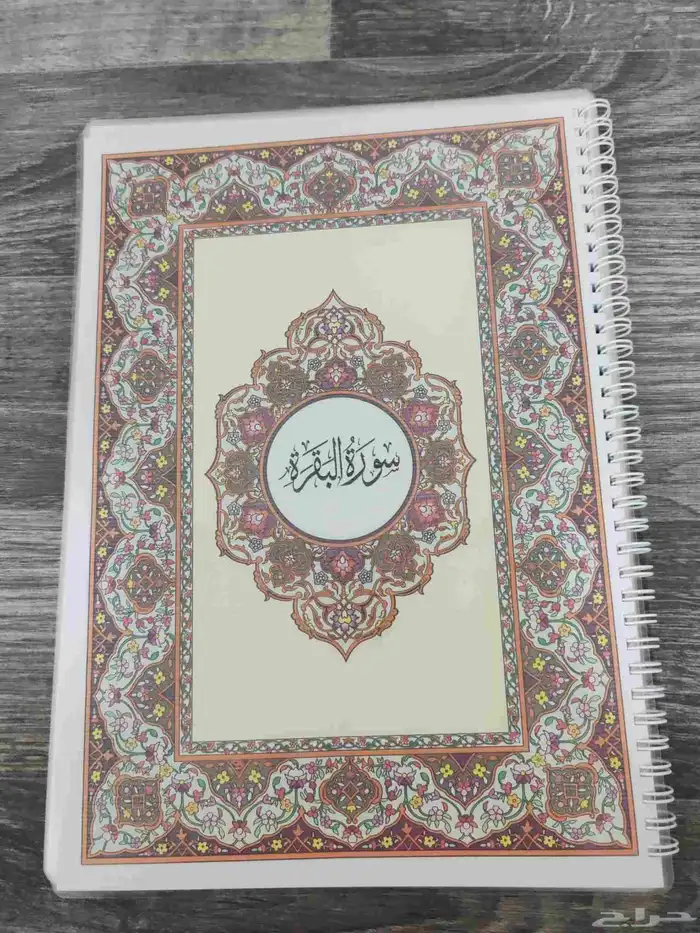 سُورَةُ الْبَقَرَةِ
حراج